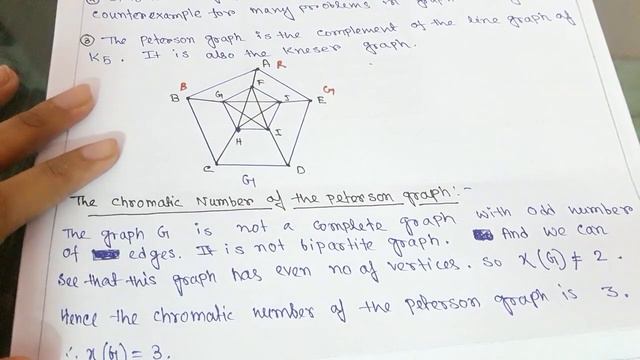 counterexample for many problems in graph
③ The Peterson graph is the complement of the line graph of
K5. It is also the Kneser graph.
A R
B
B
F
G
J
E
G
H
I
C
D
G
The Chromatic Number of the peterson graph:-
The graph G is not a complete graph with odd number
of edges. It is not bipartite graph. And we can
see that this graph has even no of vertices. so χ(G) ≠ 2.
Hence the chromatic number of the peterson graph is 3.
∴ χ(G) = 3.